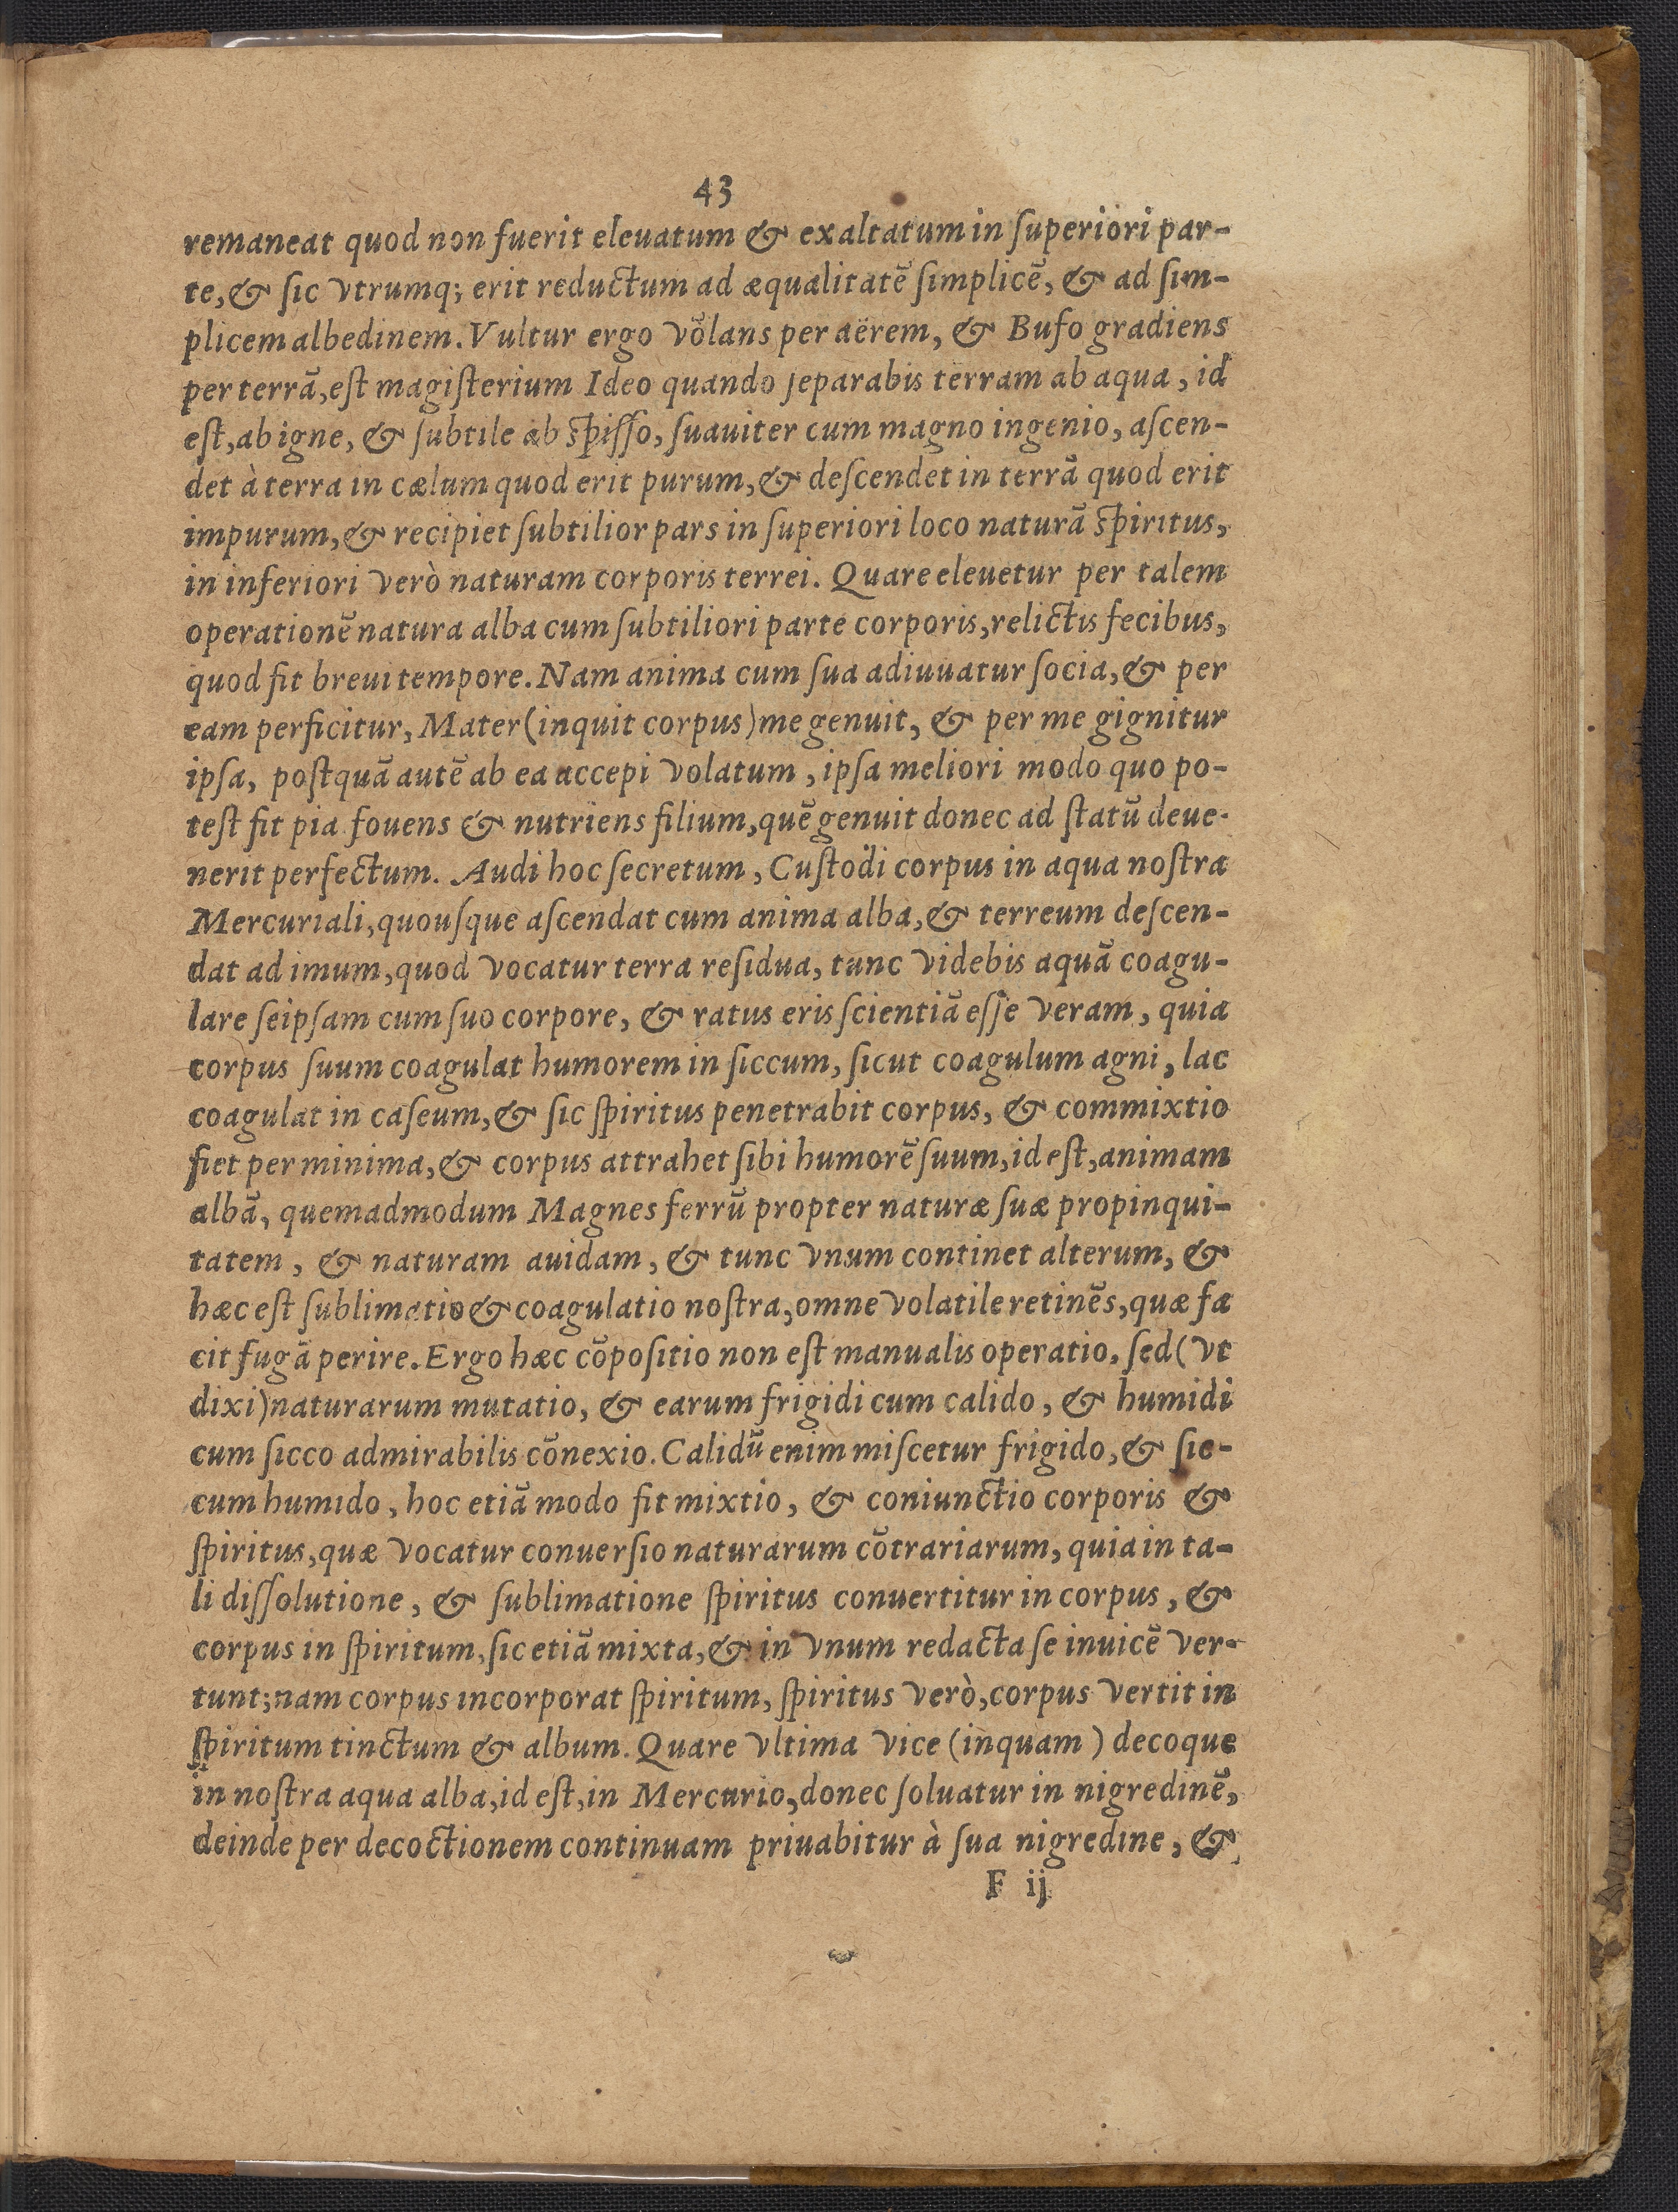 43
remaneat quod non fuerit eleuatum & exaltatum in ſuperiori par-
te, & ſic vtrumq; erit reductum ad æqualitatē ſimplicē, & ad ſim-
plicem albedinem. Vultur ergo volans per aërem, & Bufo gradiens
per terrā, eſt magiſterium Ideo quando ſeparabis terram ab aqua, id
eſt, ab igne, & ſubtile ab ſpiſſo, ſuauiter cum magno ingenio, aſcen-
det à terra in cælum quod erit purum, & deſcendet in terrā quod erit
impurum, & recipiet ſubtilior pars in ſuperiori loco naturā ſpiritus,
in inferiori verò naturam corporis terrei. Quare eleuetur per talem
operationē natura alba cum ſubtiliori parte corporis, relictis fecibus,
quod fit breui tempore. Nam anima cum ſua adiuuatur ſocia, & per
eam perficitur, Mater (inquit corpus) me genuit, & per me gignitur
ipſa, poſtquā autē ab ea accepi volatum, ipſa meliori modo quo po-
teſt fit pia fouens & nutriens filium, quē genuit donec ad ſtatū deue-
nerit perfectum. Audi hoc ſecretum, Cuſtodi corpus in aqua noſtra
Mercuriali, quouſque aſcendat cum anima alba, & terreum deſcen-
dat ad imum, quod vocatur terra reſidua, tunc videbis aquā coagu-
lare ſeipſam cum ſuo corpore, & ratus eris ſcientiā eſſe veram, quia
corpus ſuum coagulat humorem in ſiccum, ſicut coagulum agni, lac
coagulat in caſeum, & ſic ſpiritus penetrabit corpus, & commixtio
fiet per minima, & corpus attrahet ſibi humorē ſuum, id eſt, animam
albā, quemadmodum Magnes ferrū propter naturæ ſuæ propinqui-
tatem, & naturam auidam, & tunc vnum continet alterum, &
hæc eſt ſublimatio & coagulatio noſtra, omne volatile retinēs, quæ fa
cit fugā perire. Ergo hæc cōpoſitio non eſt manualis operatio, ſed (vt
dixi) naturarum mutatio, & earum frigidi cum calido, & humidi
cum ſicco admirabilis cōnexio. Calidū enim miſcetur frigido, & ſic-
cum humido, hoc etiā modo fit mixtio, & coniunctio corporis &
ſpiritus, quæ vocatur conuerſio naturarum cōtrariarum, quia in ta-
li diſſolutione, & ſublimatione ſpiritus conuertitur in corpus, &
corpus in ſpiritum, ſic etiā mixta, & in vnum redacta ſe inuicē ver-
tunt; nam corpus incorporat ſpiritum, ſpiritus verò, corpus vertit in
ſpiritum tinctum & album. Quare vltima vice (inquam) decoque
in noſtra aqua alba, id eſt, in Mercurio, donec ſoluatur in nigredinē,
deinde per decoctionem continuam priuabitur à ſua nigredine, &
F ij